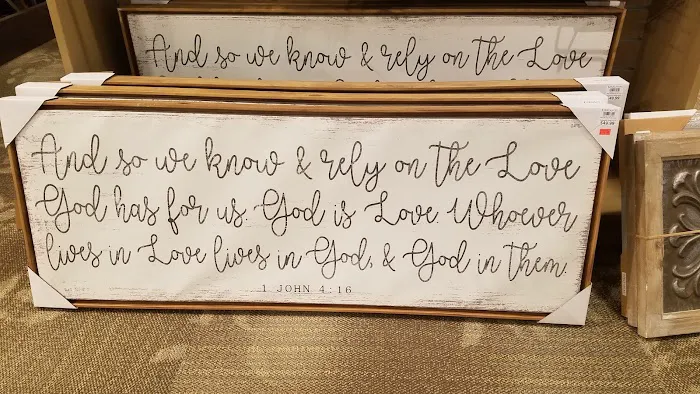 And so we know & rely on the Love
And so we know & rely on the Love
God has for us. God is Love. Whoever
lives in Love lives in God, & God in them.
1 JOHN 4:16